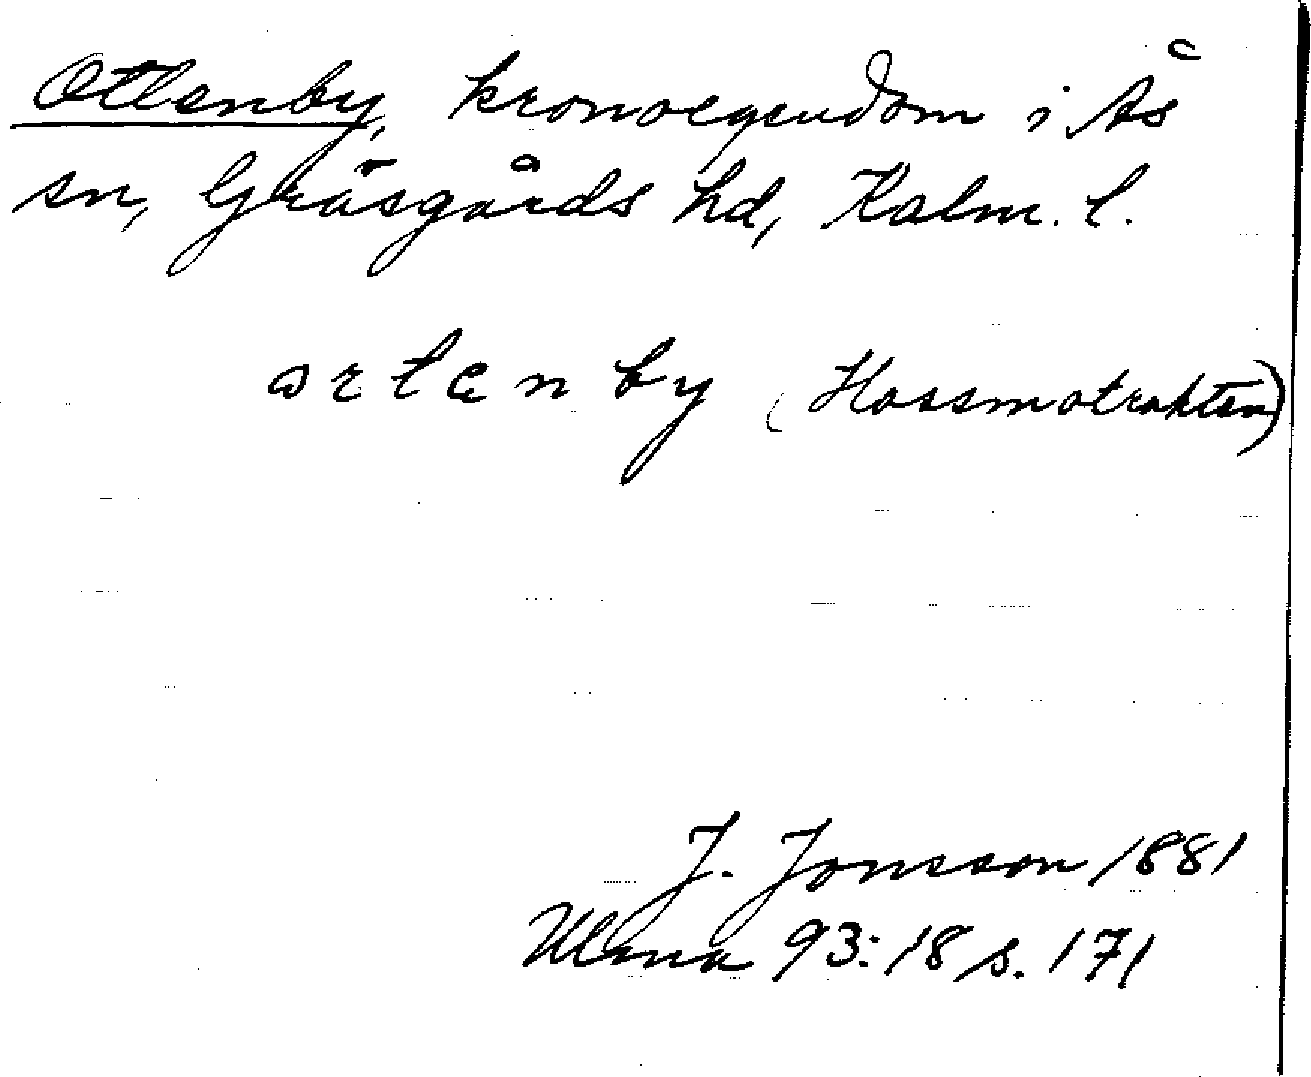 Ottenby, kronoegendom i Ås
sn, Gräsgårds hd, Kalm. l.
(Hossmotrakten)
J. Jonsson 1881
Ulma 93:18 s. 171